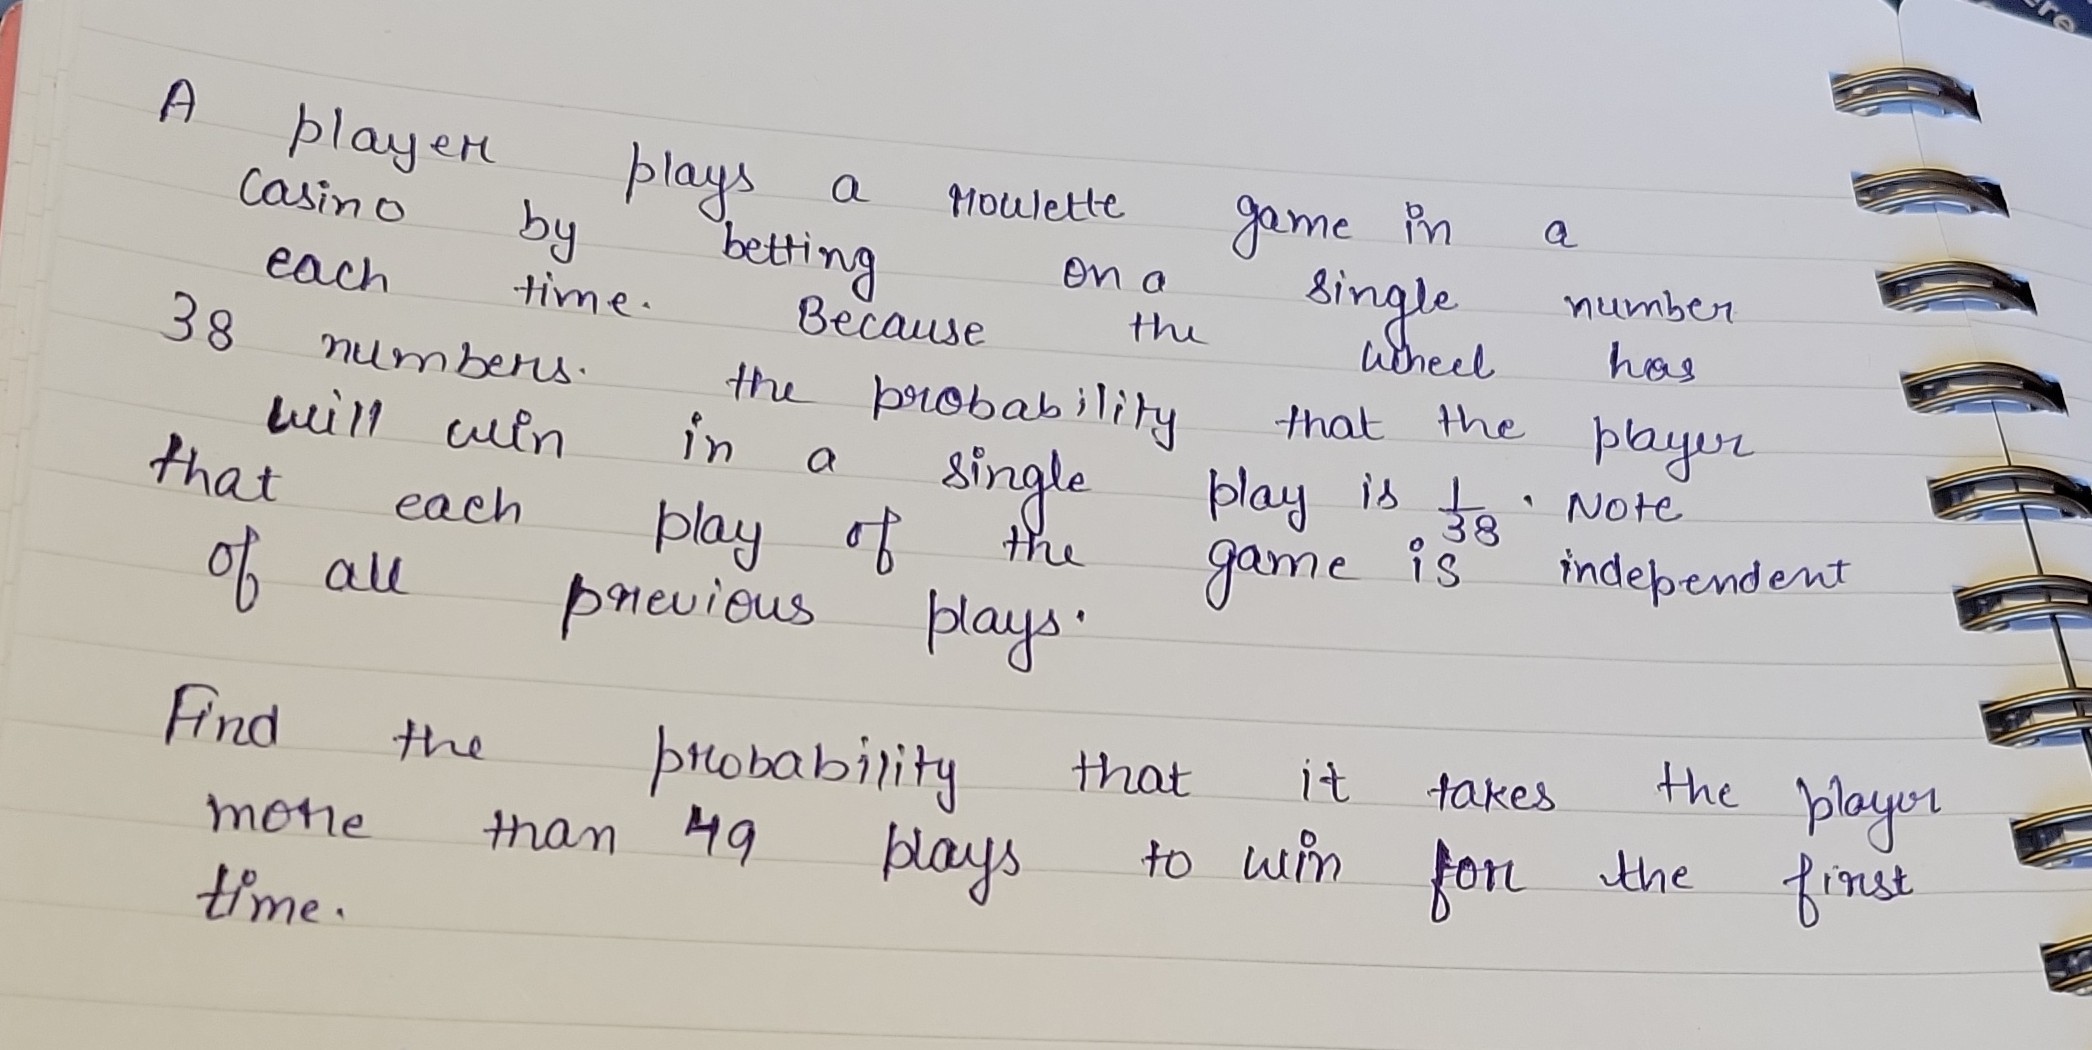 A player plays a roulette game in a
casino by betting on a single number
each time. Because the wheel has
38 numbers. the probability that the player
will win in a single play is 1/38. Note
that each play of the game is independent
of all previous plays.
Find the probability that it takes the player
more than 49 plays to win for the first
time.